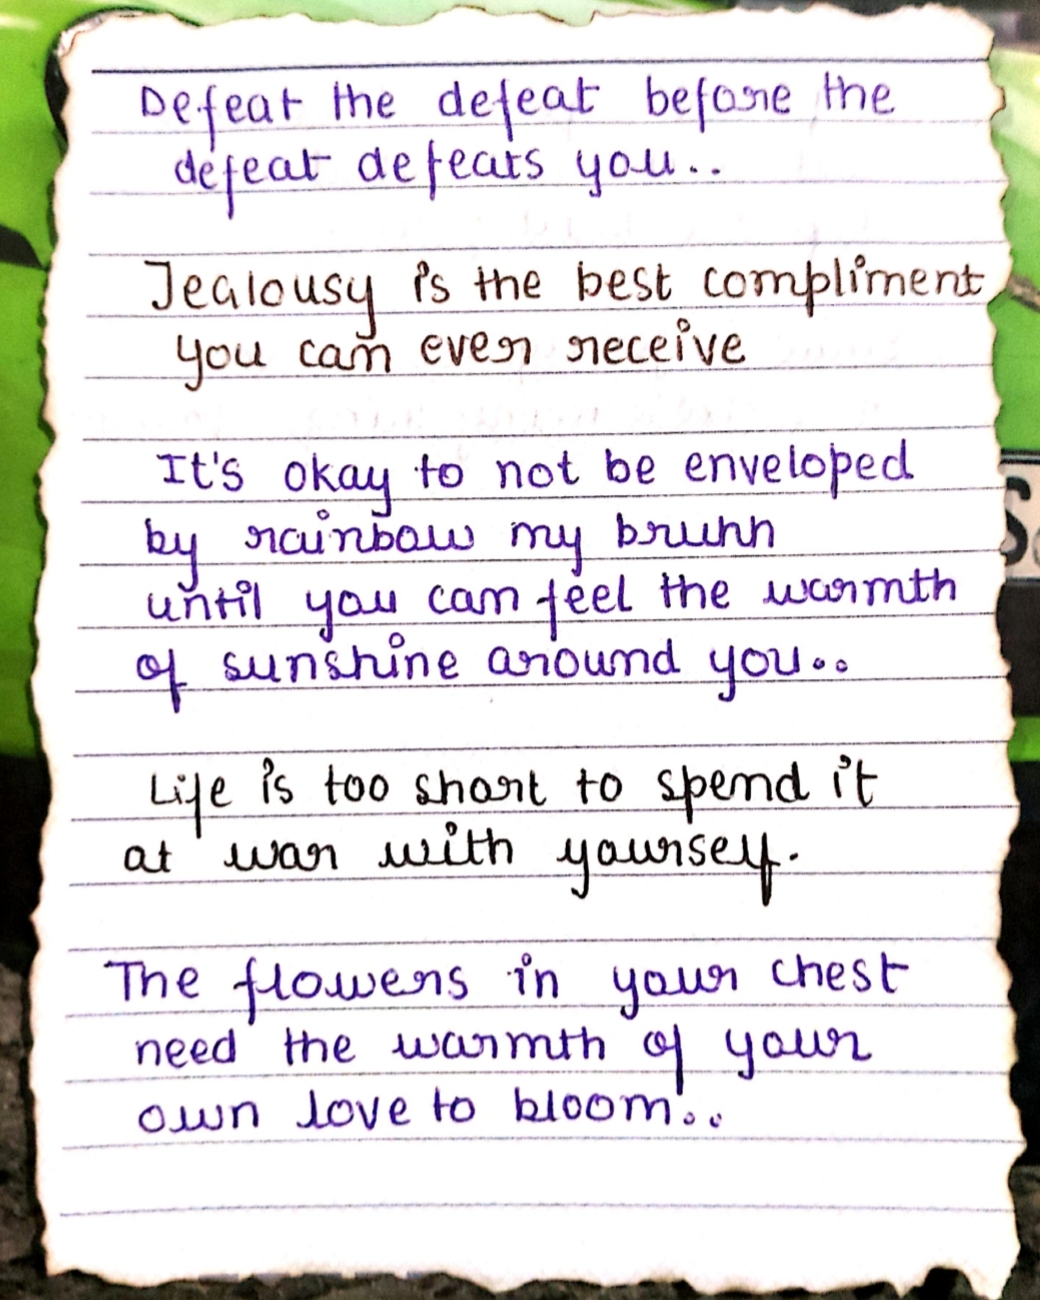 Defeat the defeat before the
defeat defeats you..
Jealousy is the best compliment
you can ever receive
It's okay to not be enveloped
by rainbow my bruhh
until you can feel the warmth
of sunshine around you..
Life is too short to spend it
at war with yourself.
The flowers in your chest
need the warmth of your
own love to bloom..
S